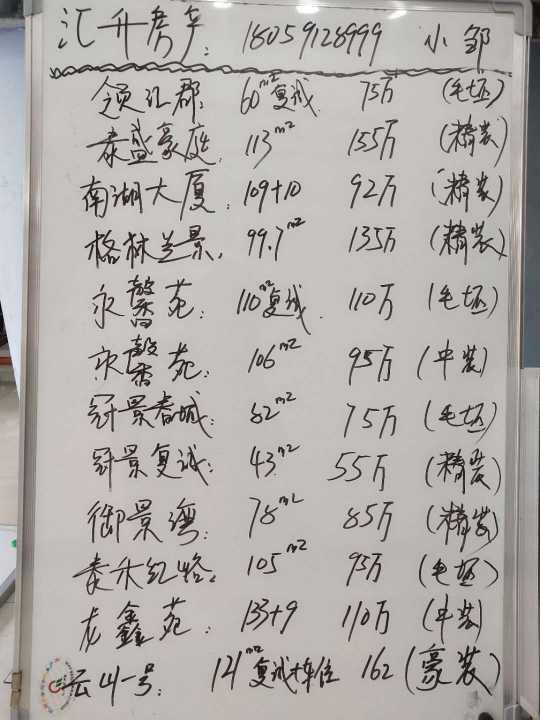 汇升房产: 18059128999 小邹
领汇郡: 60m² 复式 75万 (毛坯)
泰盛豪庭: 113m² 155万 (精装)
南湖大厦: 109+10 92万 (精装)
格林兰景: 99.7m² 135万 (精装)
永馨苑: 110m² 复式 110万 (毛坯)
永馨苑: 106m² 95万 (中装)
冠景春城: 82m² 75万 (毛坯)
冠景复式: 43m² 55万 (精装)
御景湾: 78m² 85万 (精装)
泰禾红峪: 105m² 93万 (毛坯)
龙鑫苑: 133+9 110万 (中装)
云山一号: 121m² 复式+车位 162 (豪装)